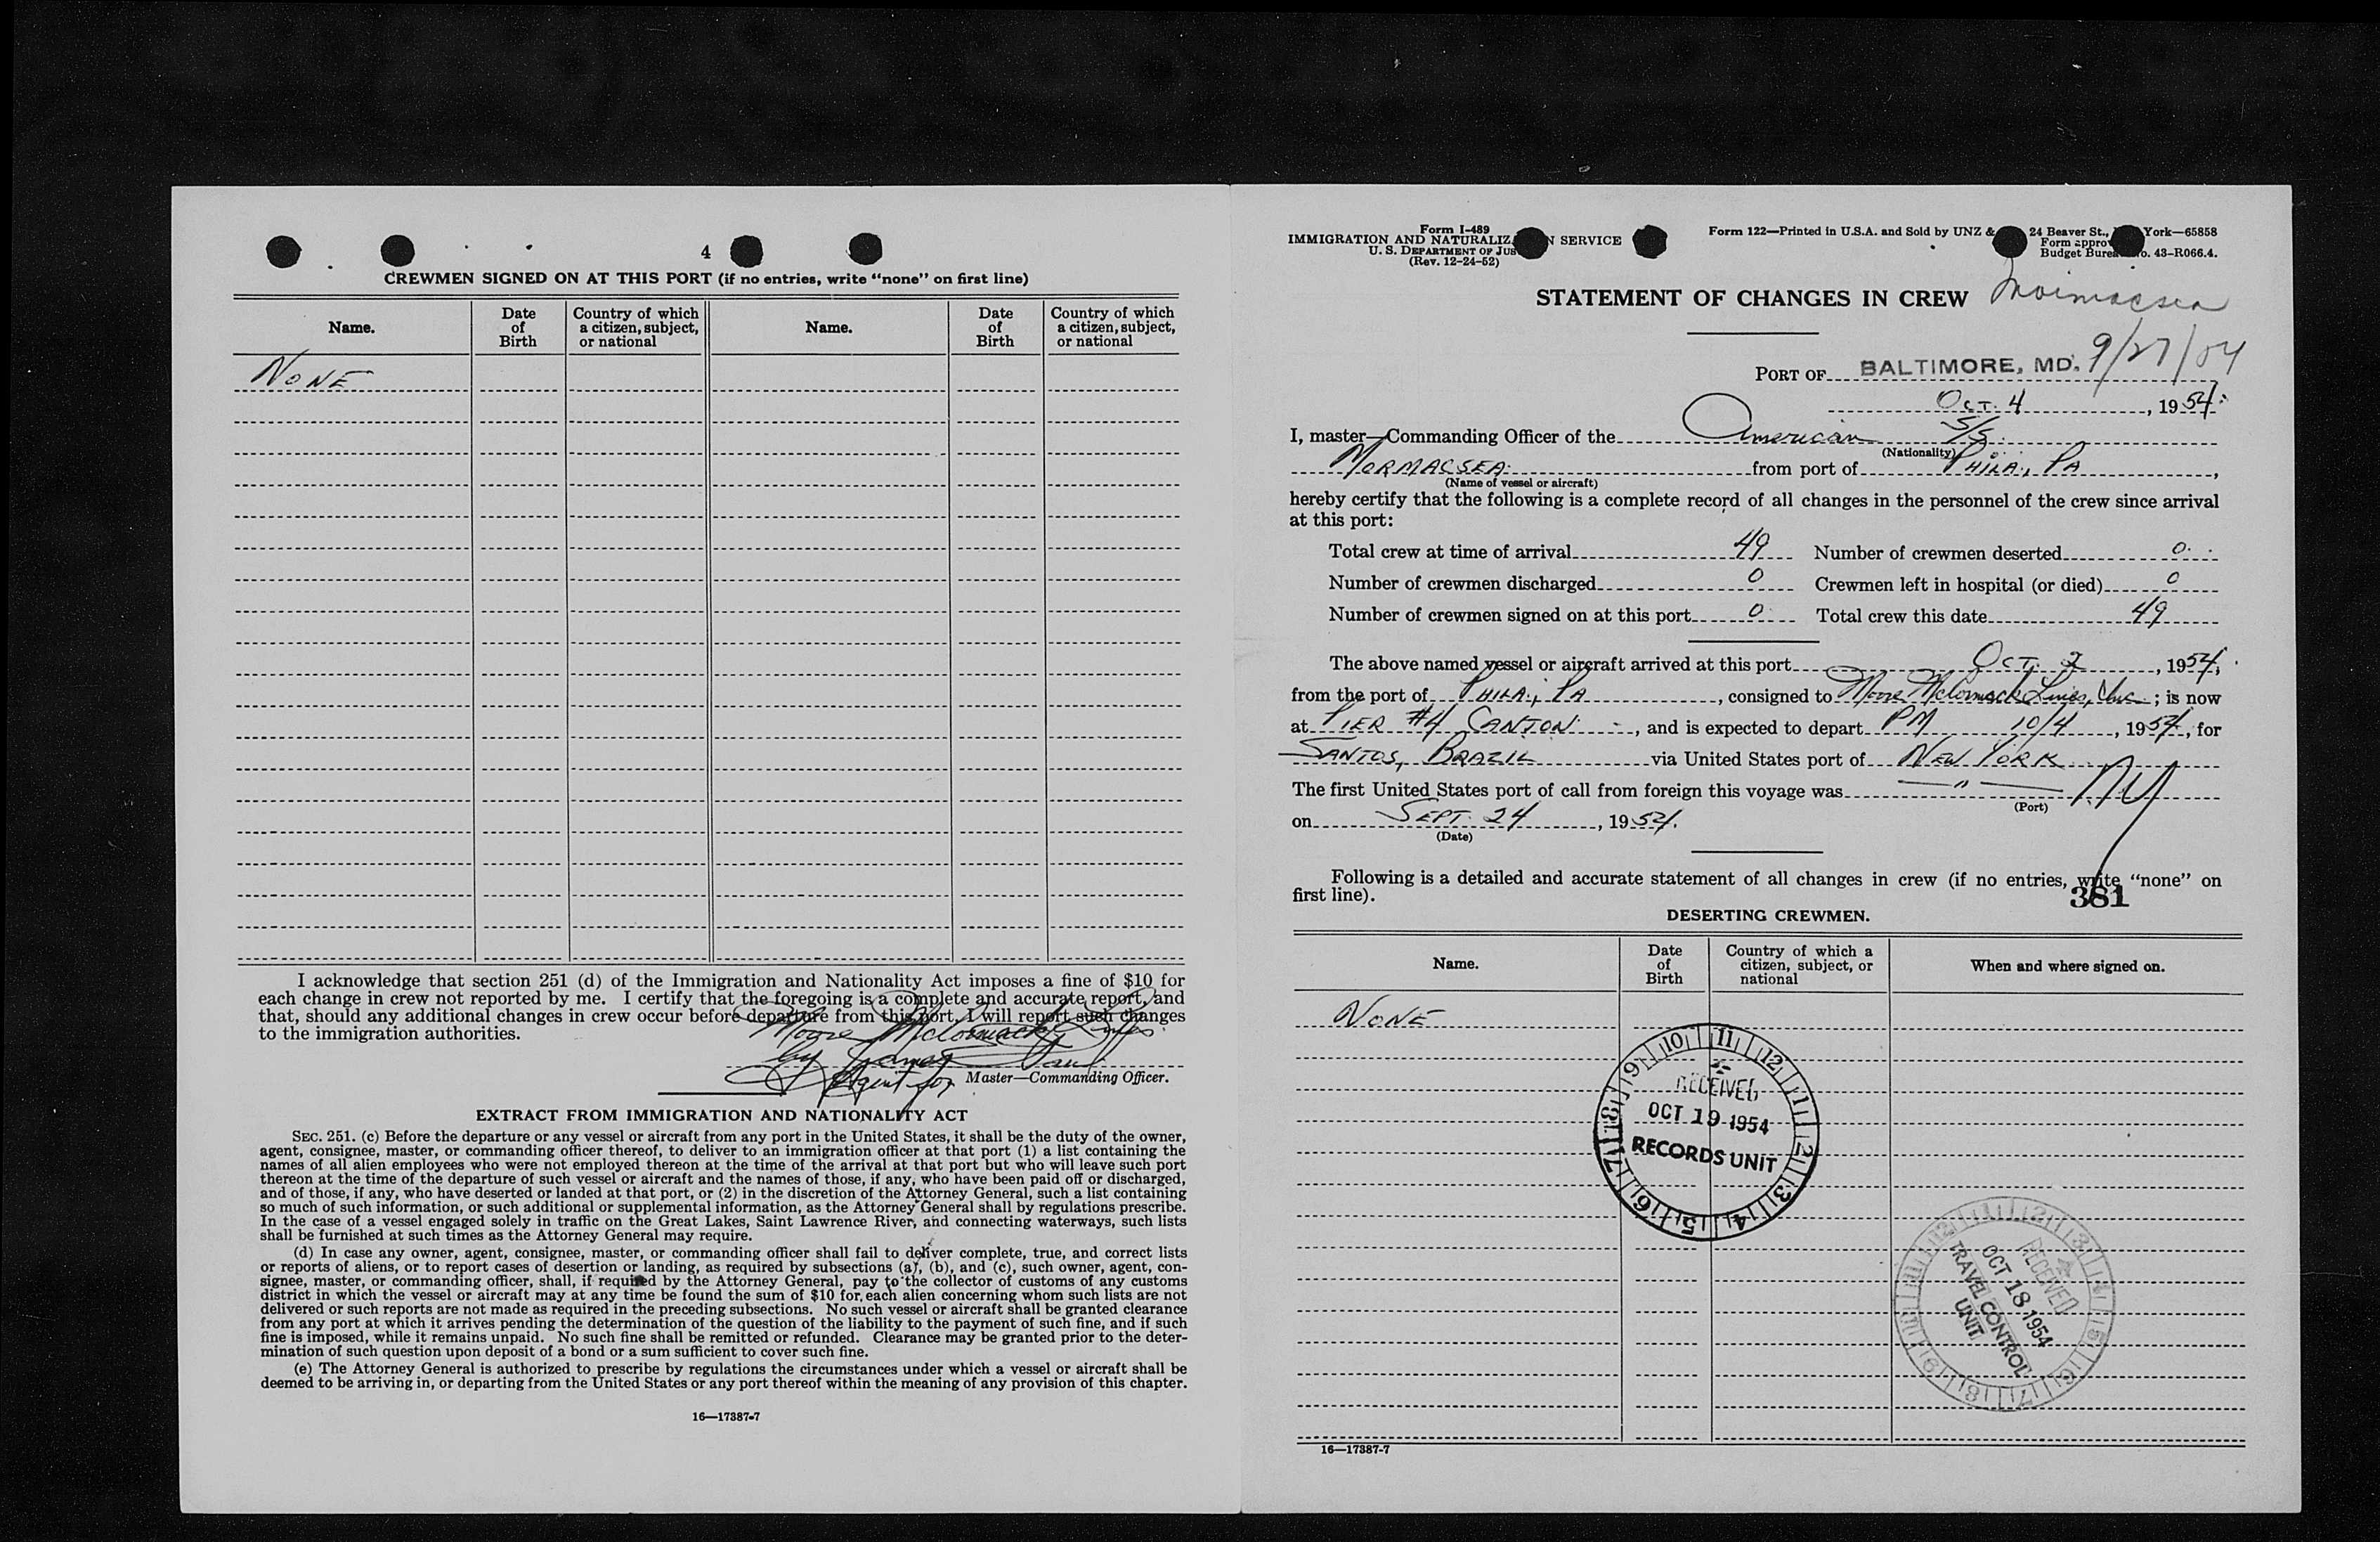 4
CREWMEN SIGNED ON AT THIS PORT (if no entries, write “none” on first line)
Name. Date of Birth Country of which a citizen, subject, or national Name. Date of Birth Country of which a citizen, subject, or national
NONE
I acknowledge that section 251 (d) of the Immigration and Nationality Act imposes a fine of $10 for
each change in crew not reported by me. I certify that the foregoing is a complete and accurate report, and
that, should any additional changes in crew occur before departure from this port, I will report such changes
to the immigration authorities.
Moore McCormack Lines
by James
Agent for Master—Commanding Officer.
EXTRACT FROM IMMIGRATION AND NATIONALITY ACT
SEC. 251. (c) Before the departure or any vessel or aircraft from any port in the United States, it shall be the duty of the owner,
agent, consignee, master, or commanding officer thereof, to deliver to an immigration officer at that port (1) a list containing the
names of all alien employees who were not employed thereon at the time of the arrival at that port but who will leave such port
thereon at the time of the departure of such vessel or aircraft and the names of those, if any, who have been paid off or discharged,
and of those, if any, who have deserted or landed at that port, or (2) in the discretion of the Attorney General, such a list containing
so much of such information, or such additional or supplemental information, as the Attorney General shall by regulations prescribe.
In the case of a vessel engaged solely in traffic on the Great Lakes, Saint Lawrence River, and connecting waterways, such lists
shall be furnished at such times as the Attorney General may require.
(d) In case any owner, agent, consignee, master, or commanding officer shall fail to deliver complete, true, and correct lists
or reports of aliens, or to report cases of desertion or landing, as required by subsections (a), (b), and (c), such owner, agent, con-
signee, master, or commanding officer, shall, if required by the Attorney General, pay to the collector of customs of any customs
district in which the vessel or aircraft may at any time be found the sum of $10 for each alien concerning whom such lists are not
delivered or such reports are not made as required in the preceding subsections. No such vessel or aircraft shall be granted clearance
from any port at which it arrives pending the determination of the question of the liability to the payment of such fine, and if such
fine is imposed, while it remains unpaid. No such fine shall be remitted or refunded. Clearance may be granted prior to the deter-
mination of such question upon deposit of a bond or a sum sufficient to cover such fine.
(e) The Attorney General is authorized to prescribe by regulations the circumstances under which a vessel or aircraft shall be
deemed to be arriving in, or departing from the United States or any port thereof within the meaning of any provision of this chapter.
16—17387-7
Form I-489
IMMIGRATION AND NATURALIZ N SERVICE
U. S. DEPARTMENT OF JUS
(Rev. 12-24-52)
Form 122—Printed in U.S.A. and Sold by UNZ & 24 Beaver St., York—65858
Form appro
Budget Burea o. 43-R066.4.
STATEMENT OF CHANGES IN CREW Mormacsea
PORT OF BALTIMORE, MD. 9/27/54
OCT. 4, 1954
I, master—Commanding Officer of the American S/S
(Nationality)
MORMACSEA from port of PHILA., PA,
(Name of vessel or aircraft)
hereby certify that the following is a complete record of all changes in the personnel of the crew since arrival
at this port:
Total crew at time of arrival 49 Number of crewmen deserted 0
Number of crewmen discharged 0 Crewmen left in hospital (or died) 0
Number of crewmen signed on at this port 0 Total crew this date 49
The above named vessel or aircraft arrived at this port OCT. 2, 1954,
from the port of PHILA., PA, consigned to Moore McCormack Lines, Inc; is now
at PIER #4 CANTON, and is expected to depart PM 10/4, 1954, for
SANTOS, BRAZIL via United States port of NEW YORK
The first United States port of call from foreign this voyage was — " — NY
(Port)
on SEPT. 24, 1954.
(Date)
Following is a detailed and accurate statement of all changes in crew (if no entries, write “none” on
first line).
381
DESERTING CREWMEN.
Name. Date of Birth Country of which a citizen, subject, or national When and where signed on.
NONE
10 11 12 1 2 3 4 5 6 7 8 9
RECEIVED
OCT 19 1954
RECORDS UNIT
RECEIVED
OCT 18 1954
TRAVEL CONTROL
UNIT
16—17387-7